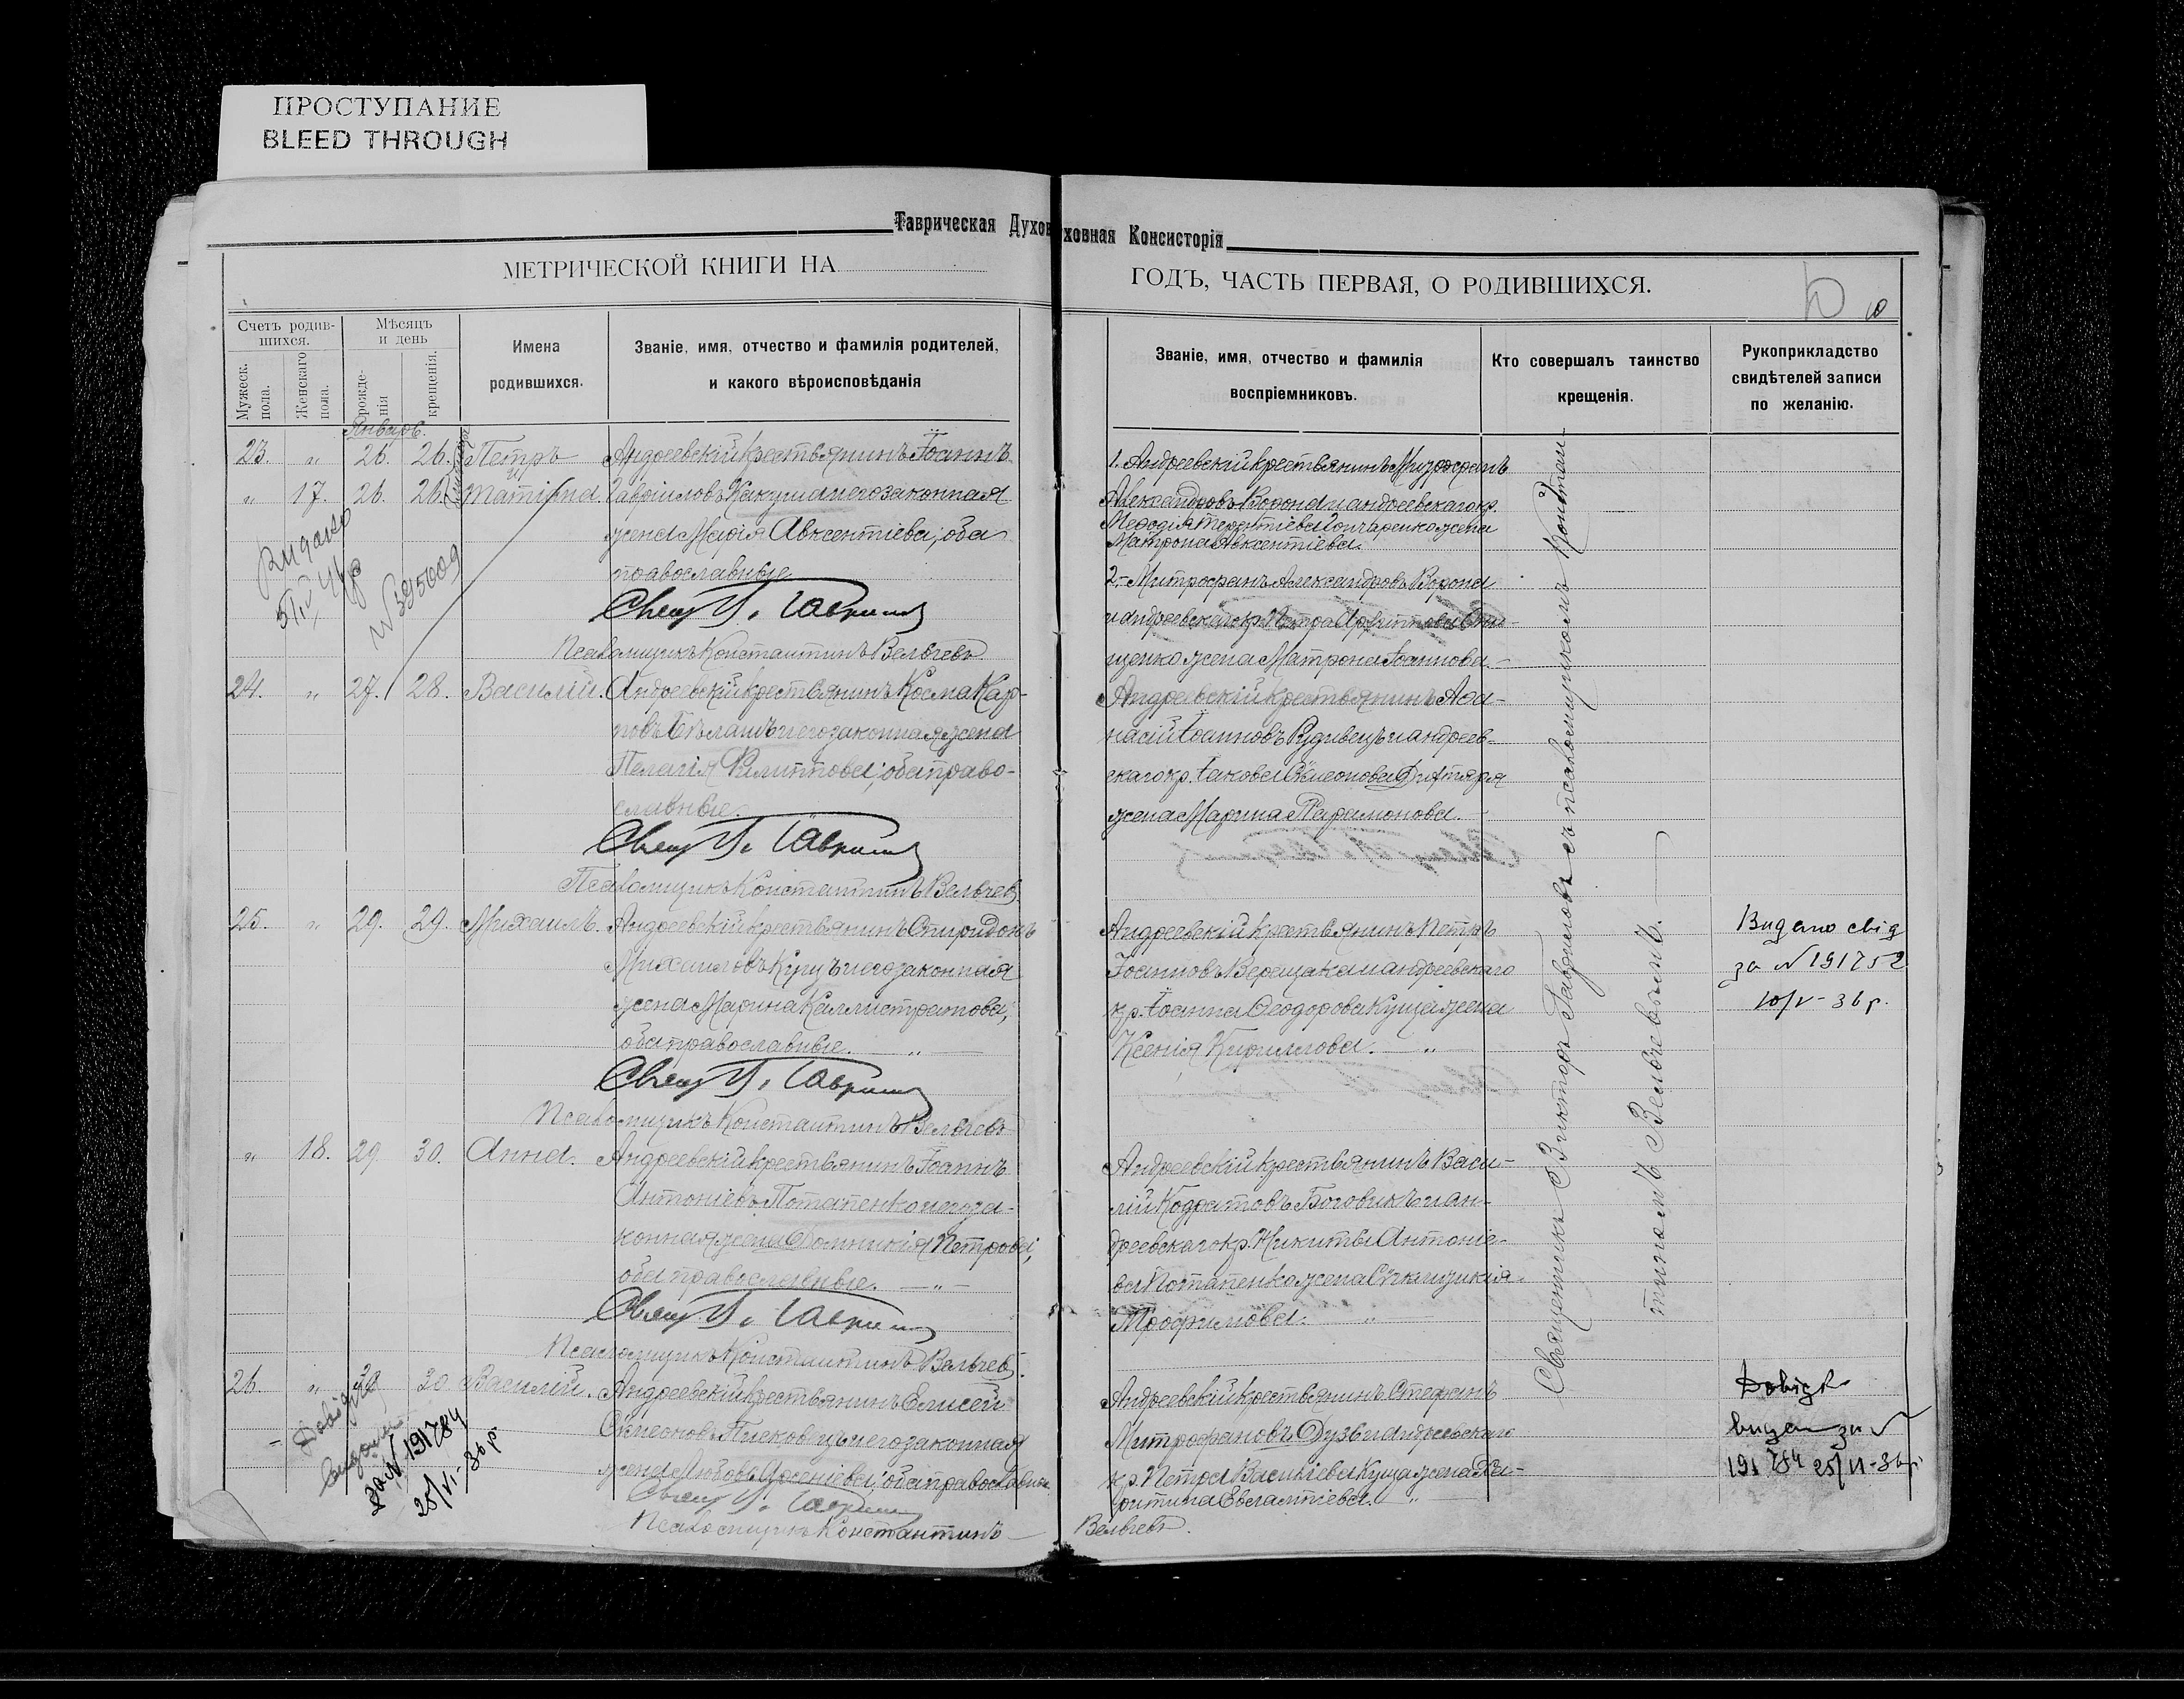 ПРОСТУПАНИЕ
BLEED THROUGH
Таврическая Духовная Консисторія
МЕТРИЧЕСКОЙ КНИГИ НА
ГОДЪ, ЧАСТЬ ПЕРВАЯ, О РОДИВШИХСЯ.
Счетъ родив-
шихся.
Мужеск. пола.
Женскаго пола.
Мѣсяцъ
и день
рожде-
нія
крещенія.
Имена
родившихся.
Званіе, имя, отчество и фамилія родителей,
и какого вѣроисповѣданія
Званіе, имя, отчество и фамилія
воспріемниковъ.
Кто совершалъ таинство
крещенія.
Рукоприкладство
свидѣтелей записи
по желанію.
Январь.
23. „ 26. 26. Петръ
„ 17. 26. 26.
Андреевскій крестьянинъ Іоаннъ
Гавріиловъ и его законная
жена Марія Авксентіева, оба
православные
Псаломщикъ Константинъ Вельчевъ.
1. Андреевскій крестьянинъ Митрофанъ
Александровъ Ворона и андреевскаго кр.
Мефодія Терентіева Гончаренко жена
Матрона Авксентіева.
2. Митрофанъ Александровъ Ворона
и андреевскаго кр. Петра
щенко жена Матрона Іоаннова.
Видано
№ 395009
24. „ 27. 28. Василій.
Андреевскій крестьянинъ Косма Кар-
повъ и его законная жена
Пелагія Филиппова; оба право-
славные.
Псаломщикъ Константинъ Вельчевъ
Андреевскій крестьянинъ Аѳа-
насій Іоанновъ и андреев-
скаго кр. Іакова Сѵмеонова
жена Марина Парамонова.
25. „ 29. 29. Михаилъ.
Андреевскій крестьянинъ Спиридонъ
Михаиловъ Куцъ и его законная
жена Марина Каллистратова;
оба православные. „
Псаломщикъ Константинъ Вельчевъ
Андреевскій крестьянинъ Петръ
Іоанновъ Верещака и андреевскаго
кр. Іоанна Ѳеодорова Куща жена
Ксенія Кириллова. „
Видано свід
за № 191752
10/V-36 р.
„ 18. 29. 30. Анна.
Андреевскій крестьянинъ Іоаннъ
Антоніевъ Потапенко и его за-
конная жена Домникія Петрова,
оба православные. „
Псаломщикъ Константинъ Вельчевъ.
Андреевскій крестьянинъ Васи-
лій Кодратовъ Боговикъ и ан-
дреевскаго кр. Никиты Антоніе-
ва Потапенка жена
Трофимова. „
26. „ 29 30. Василій.
Андреевскій крестьянинъ Елисей
Сѵмеоновъ и его законная
жена Любовь Арсеніева, оба православные
Псаломщикъ Константинъ Вельчевъ.
Андреевскій крестьянинъ Стефанъ
Митрофановъ и андреевскаго
кр. Петра Василіева Куща жена Ха-
ритина Евлампіева. „
за № 191784
25/VI-36 р.
видан за №
191784 25/VI-36 р.
Священникъ Викторъ Гавриловъ съ псаломщикомъ Констан-
тиномъ Вельчевымъ.